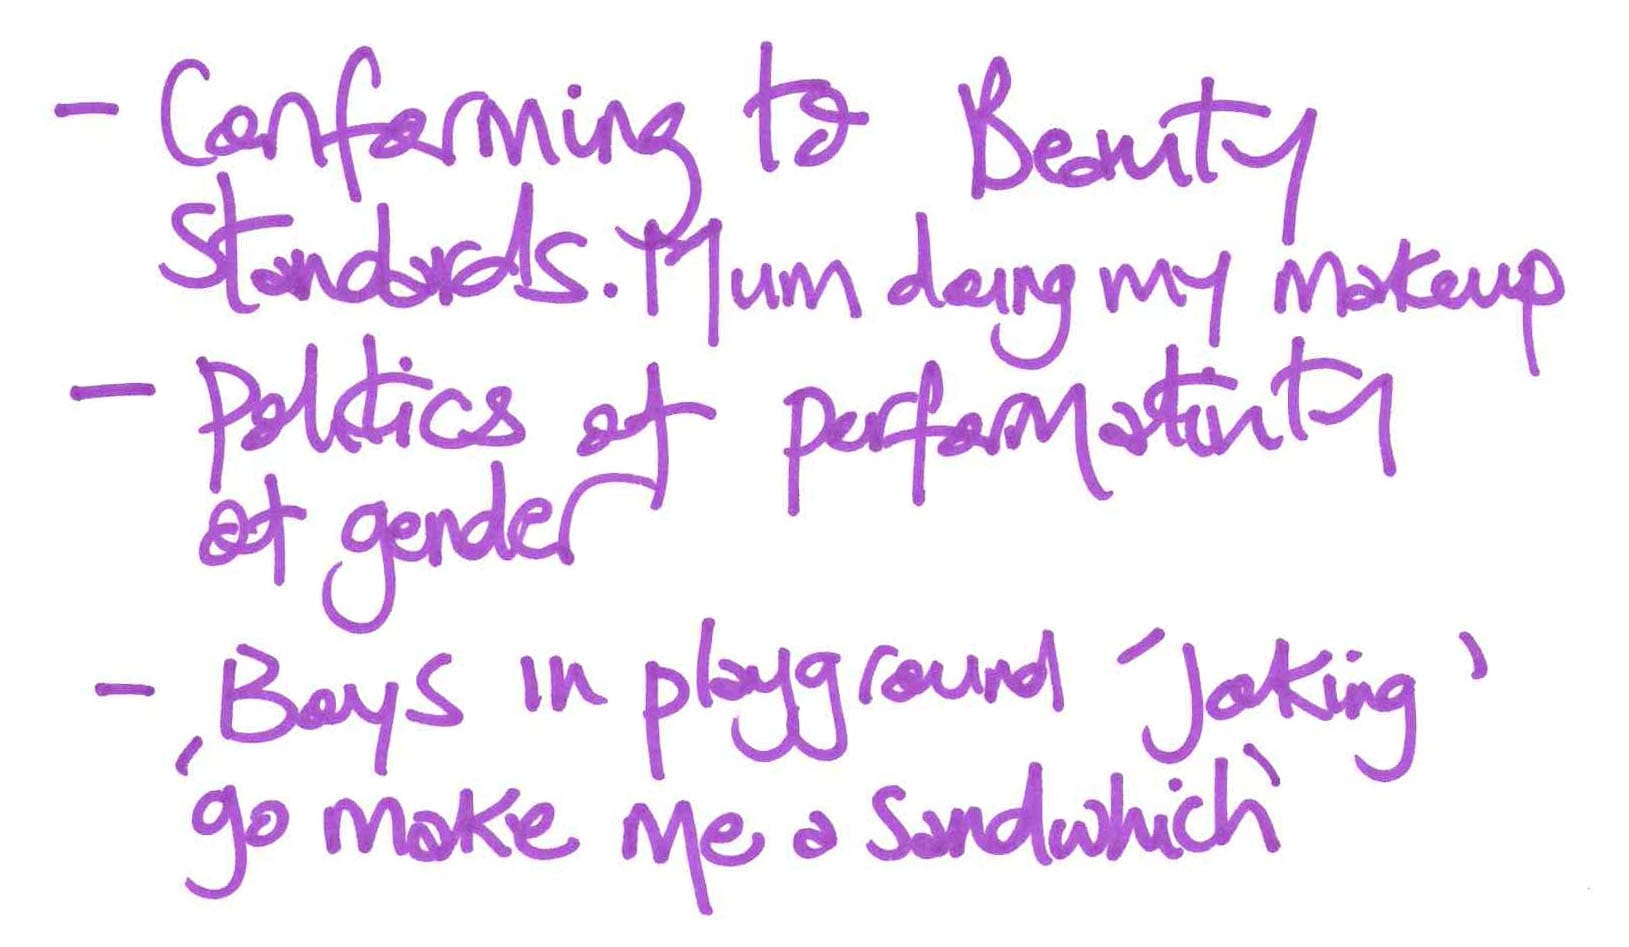 - Conforming to Beauty
Standards. Mum doing my makeup
- Politics of performativity
of gender
- Boys in playground 'Joking'
'go make me a Sandwhich'